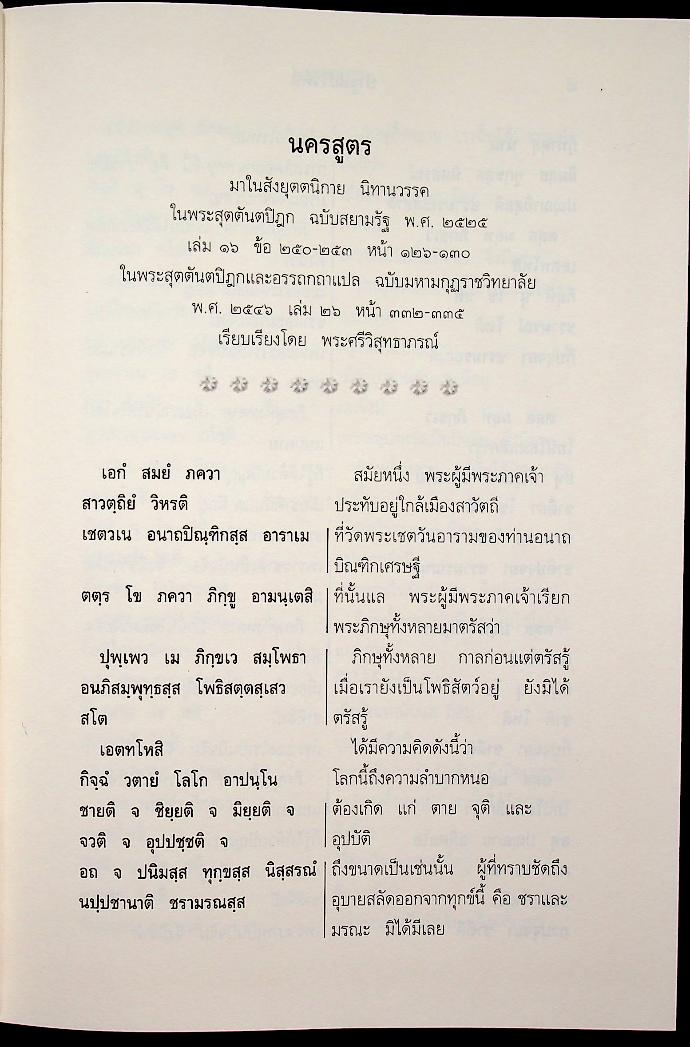 นครสูตร
มาในสังยุตตนิกาย นิทานวรรค
ในพระสุตตันตปิฎก ฉบับสยามรัฐ พ.ศ. ๒๕๒๕
เล่ม ๑๖ ข้อ ๒๕๐-๒๕๓ หน้า ๑๒๖-๑๓๐
ในพระสุตตันตปิฎกและอรรถกถาแปล ฉบับมหามกุฏราชวิทยาลัย
พ.ศ. ๒๕๔๖ เล่ม ๒๖ หน้า ๓๓๒-๓๓๕
เรียบเรียงโดย พระศรีวิสุทธาภรณ์
เอกํ สมยํ ภควา
สาวตฺถิยํ วิหรติ
เชตวเน อนาถปิณฺฑิกสฺส อาราเม
ตตฺร โข ภควา ภิกฺขู อามนฺเตสิ
ปุพฺเพว เม ภิกฺขเว สมฺโพธา
อนภิสมฺพุทฺธสฺส โพธิสตฺตสฺเสว
สโต
เอตทโหสิ
กิจฺฉํ วตายํ โลโก อาปนฺโน
ชายติ จ ชิยฺยติ จ มิยฺยติ จ
จวติ จ อุปปชฺชติ จ
อถ จ ปนิมสฺส ทุกฺขสฺส นิสฺสรณํ
นปฺปชานาติ ชรามรณสฺส
สมัยหนึ่ง พระผู้มีพระภาคเจ้า
ประทับอยู่ใกล้เมืองสาวัตถี
ที่วัดพระเชตวันอารามของท่านอนาถ
บิณฑิกเศรษฐี
ที่นั้นแล พระผู้มีพระภาคเจ้าเรียก
พระภิกษุทั้งหลายมาตรัสว่า
ภิกษุทั้งหลาย กาลก่อนแต่ตรัสรู้
เมื่อเรายังเป็นโพธิสัตว์อยู่ ยังมิได้
ตรัสรู้
ได้มีความคิดดังนี้ว่า
โลกนี้ถึงความลำบากหนอ
ต้องเกิด แก่ ตาย จุติ และ
อุปบัติ
ถึงขนาดเป็นเช่นนั้น ผู้ที่ทราบชัดถึง
อุบายสลัดออกจากทุกข์นี้ คือ ชราและ
มรณะ มิได้มีเลย